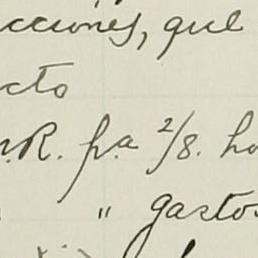 cciones, que
cto
R. p.a 2/8. ha
" gastos